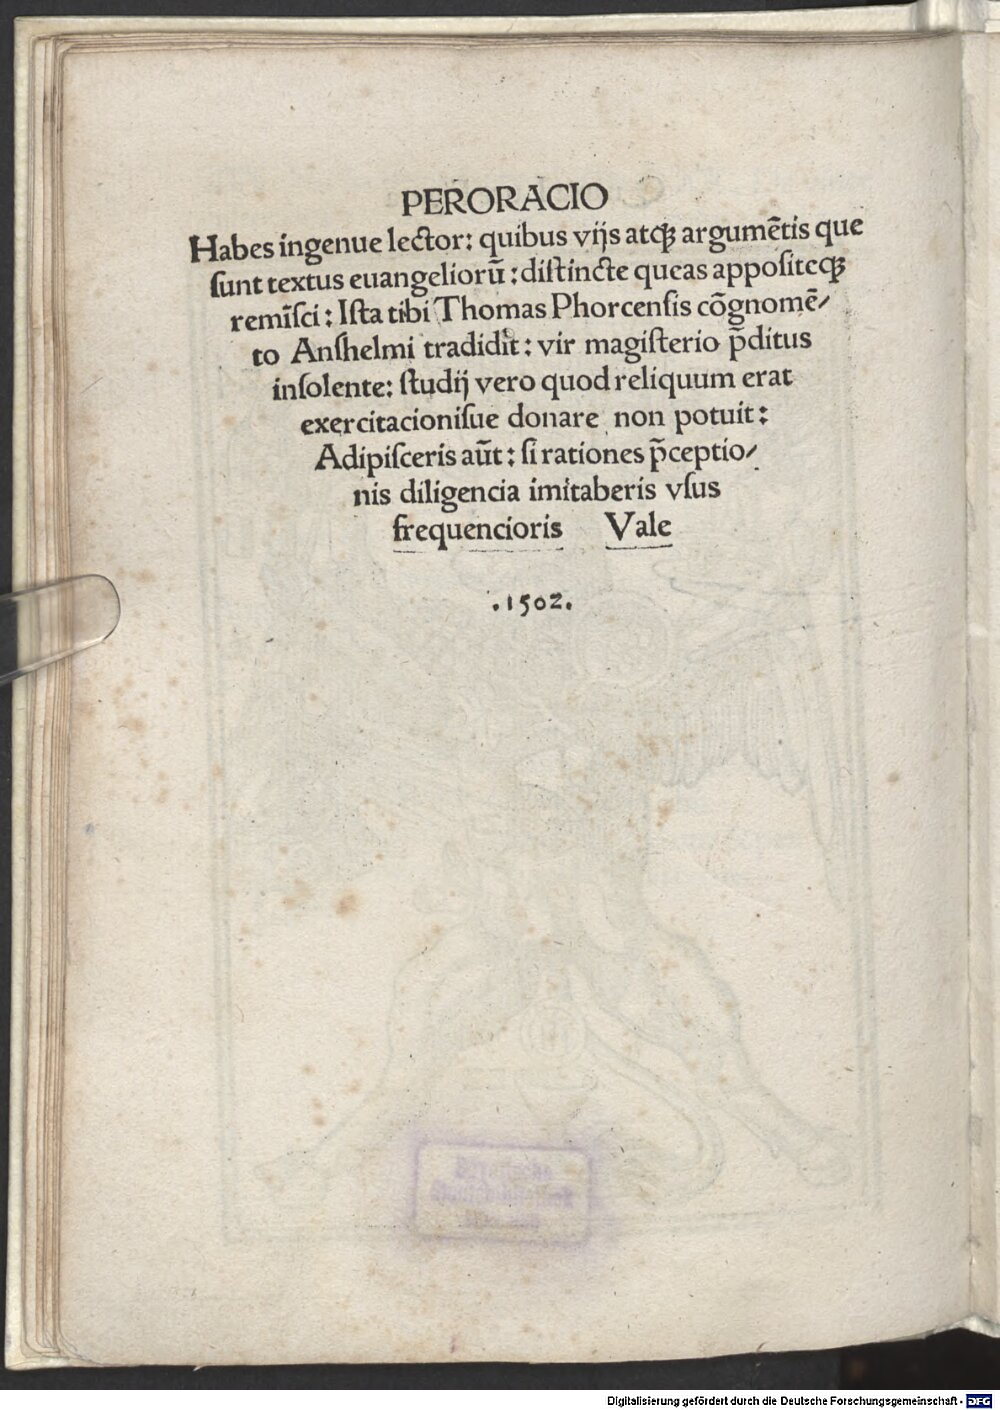 PERORACIO
Habes ingenue lector: quibus vijs atqꝫ argumētis que
ſunt textus euangeliorū: diſtincte queas appoſiteqꝫ
remīſci: Iſta tibi Thomas Phorcenſis cōgnomē/
to Anſhelmi tradidit: vir magiſterio p̄ditus
inſolente: ſtudij vero quod reliquum erat
exercitacioniſue donare non potuit:
Adipiſceris aūt: ſi rationes p̄ceptio/
nis diligencia imitaberis vſus
frequencioris Vale
.1502.
Digitalisierung gefördert durch die Deutsche Forschungsgemeinschaft - DFG